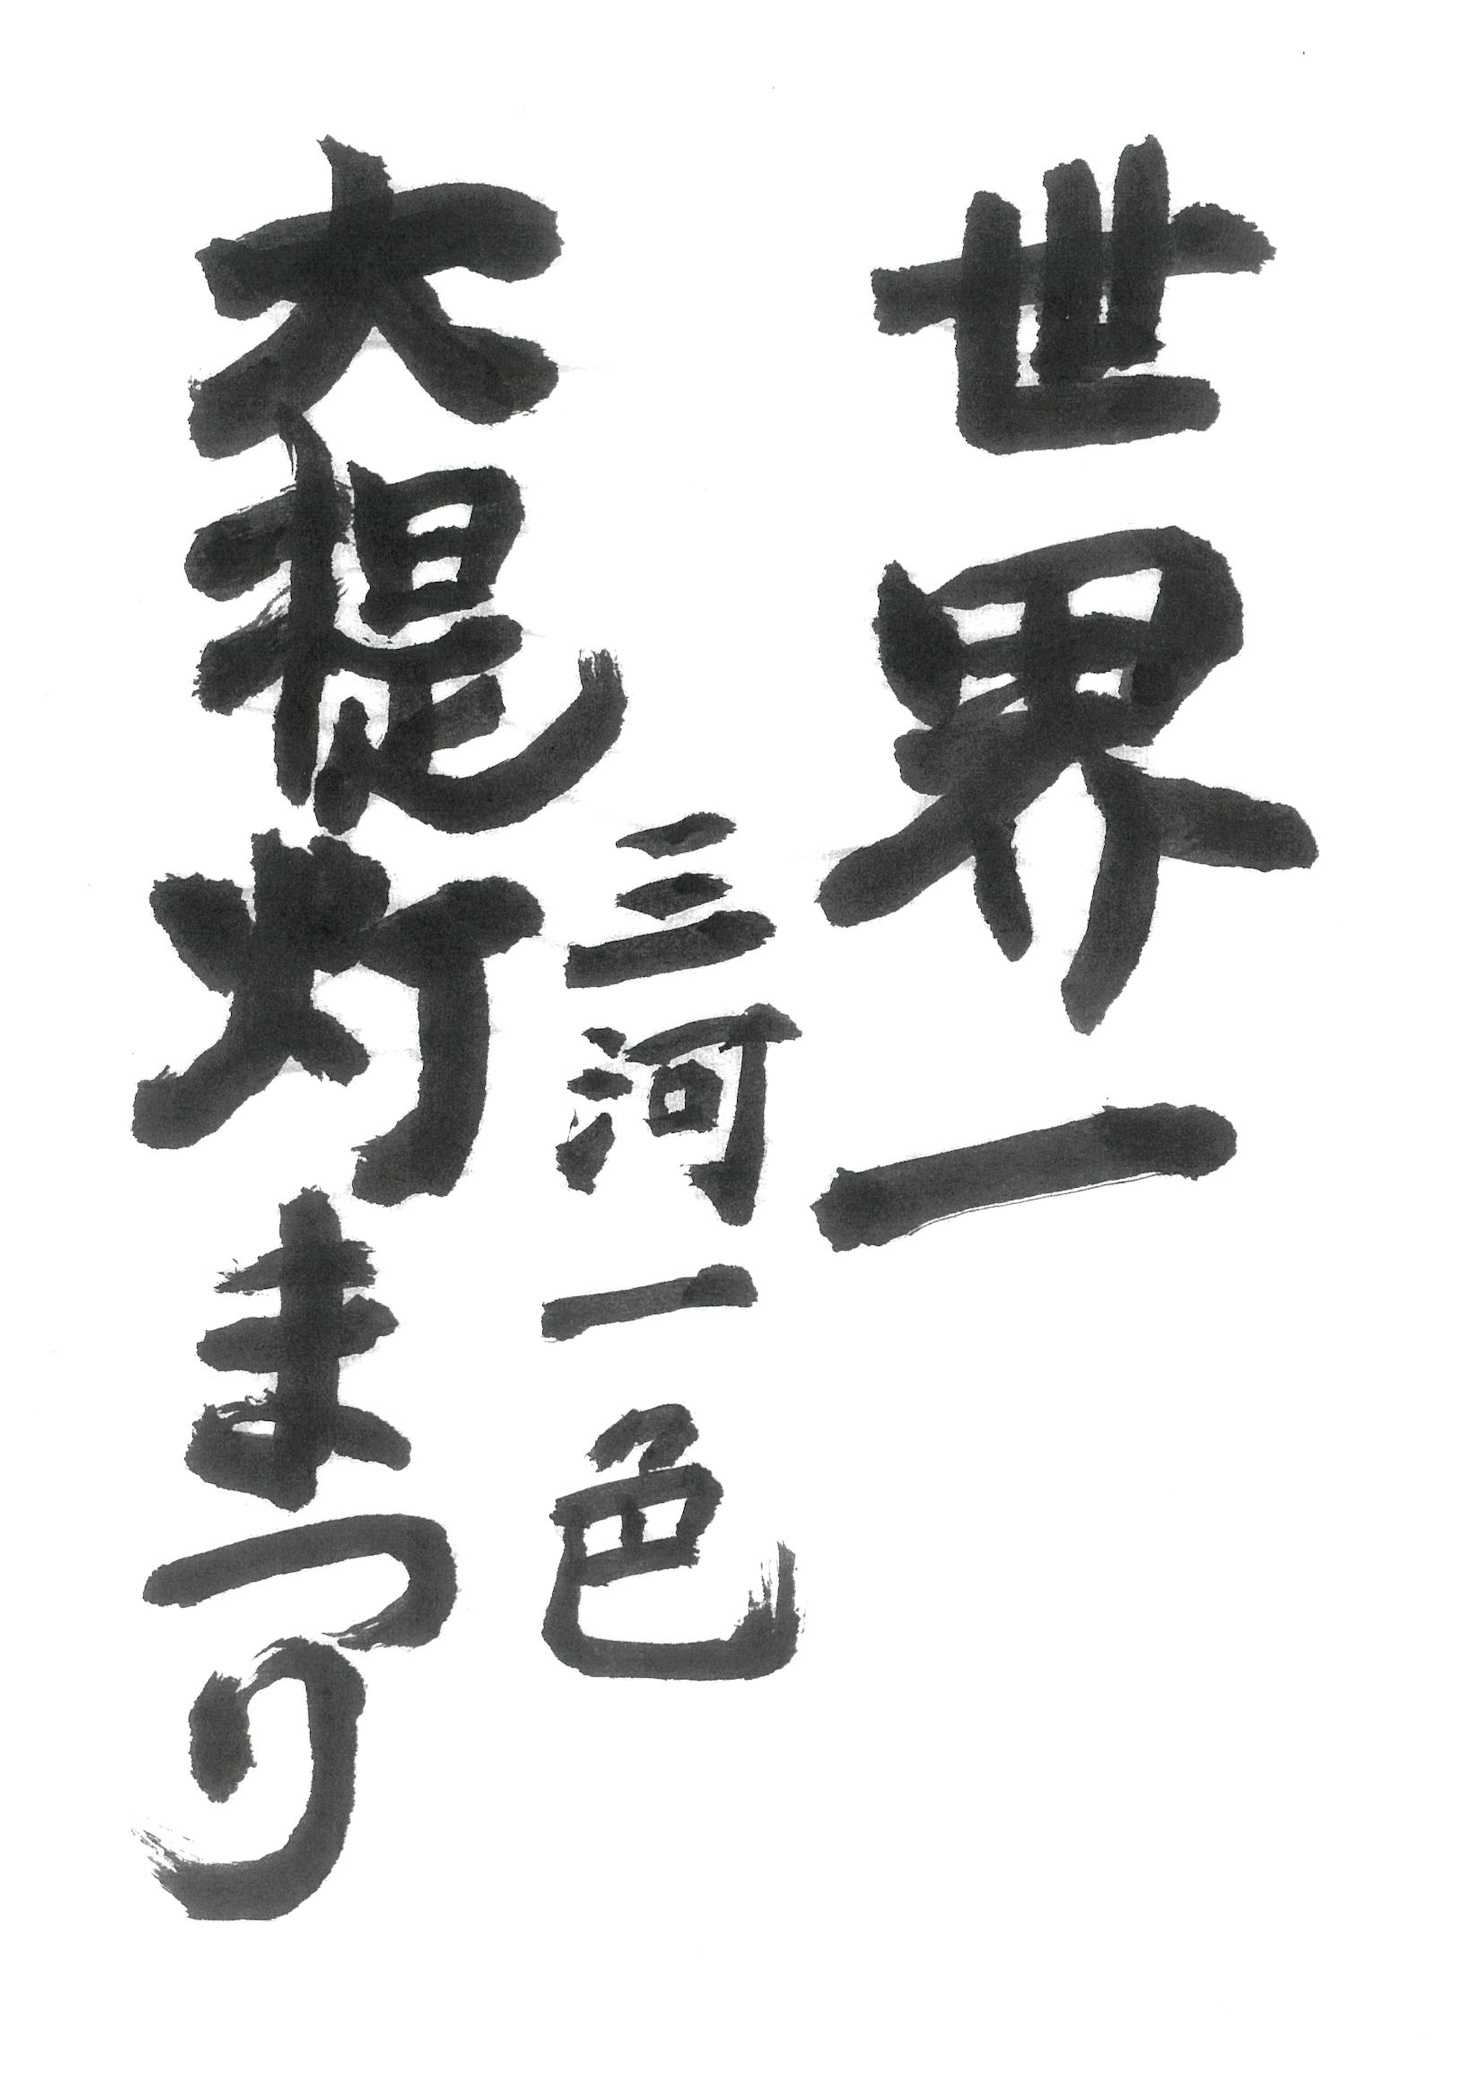 世界一
三河一色
大提灯まつり